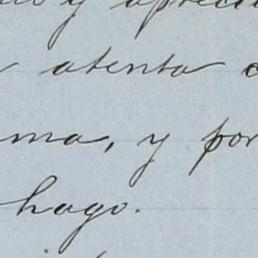 y apreci
atenta
ma, y por
hago.